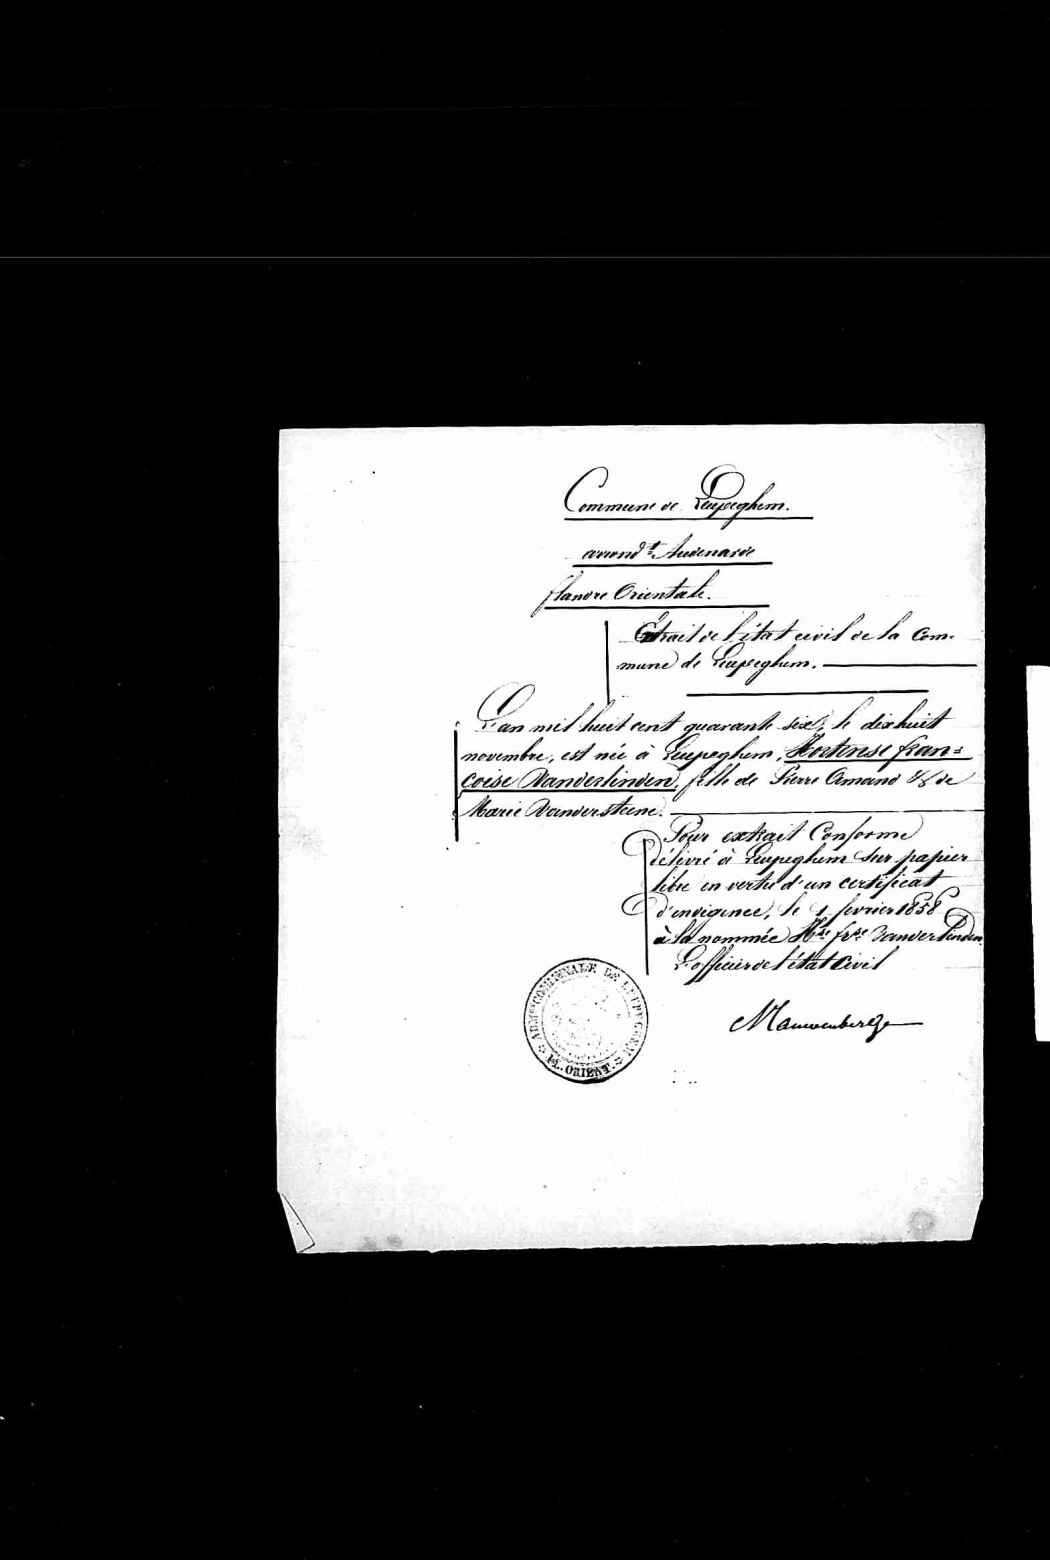 Commune de Leupeghem.
arrond.t Audenarde
flandre Orientale.
Extrait de l'état civil de la Com-
mune de Leupeghem.
L'an mil huit cent quarante six, le dixhuit
novembre, est née à Leupeghem, Hortense fran=
çoise Vanderlinden, fille de Pierre Amand & de
Marie Vandersteene.
Pour extrait Conforme
délivré à Leupeghem sur papier
libre en vertu d'un certificat
d'indigence, le 1 fevrier 1858
à la nommée H.se fr.se Vanderlinden
L'officier de l'état Civil
ADM.on COMMUNALE DE LEUPEGHEM
FL. ORIENT.